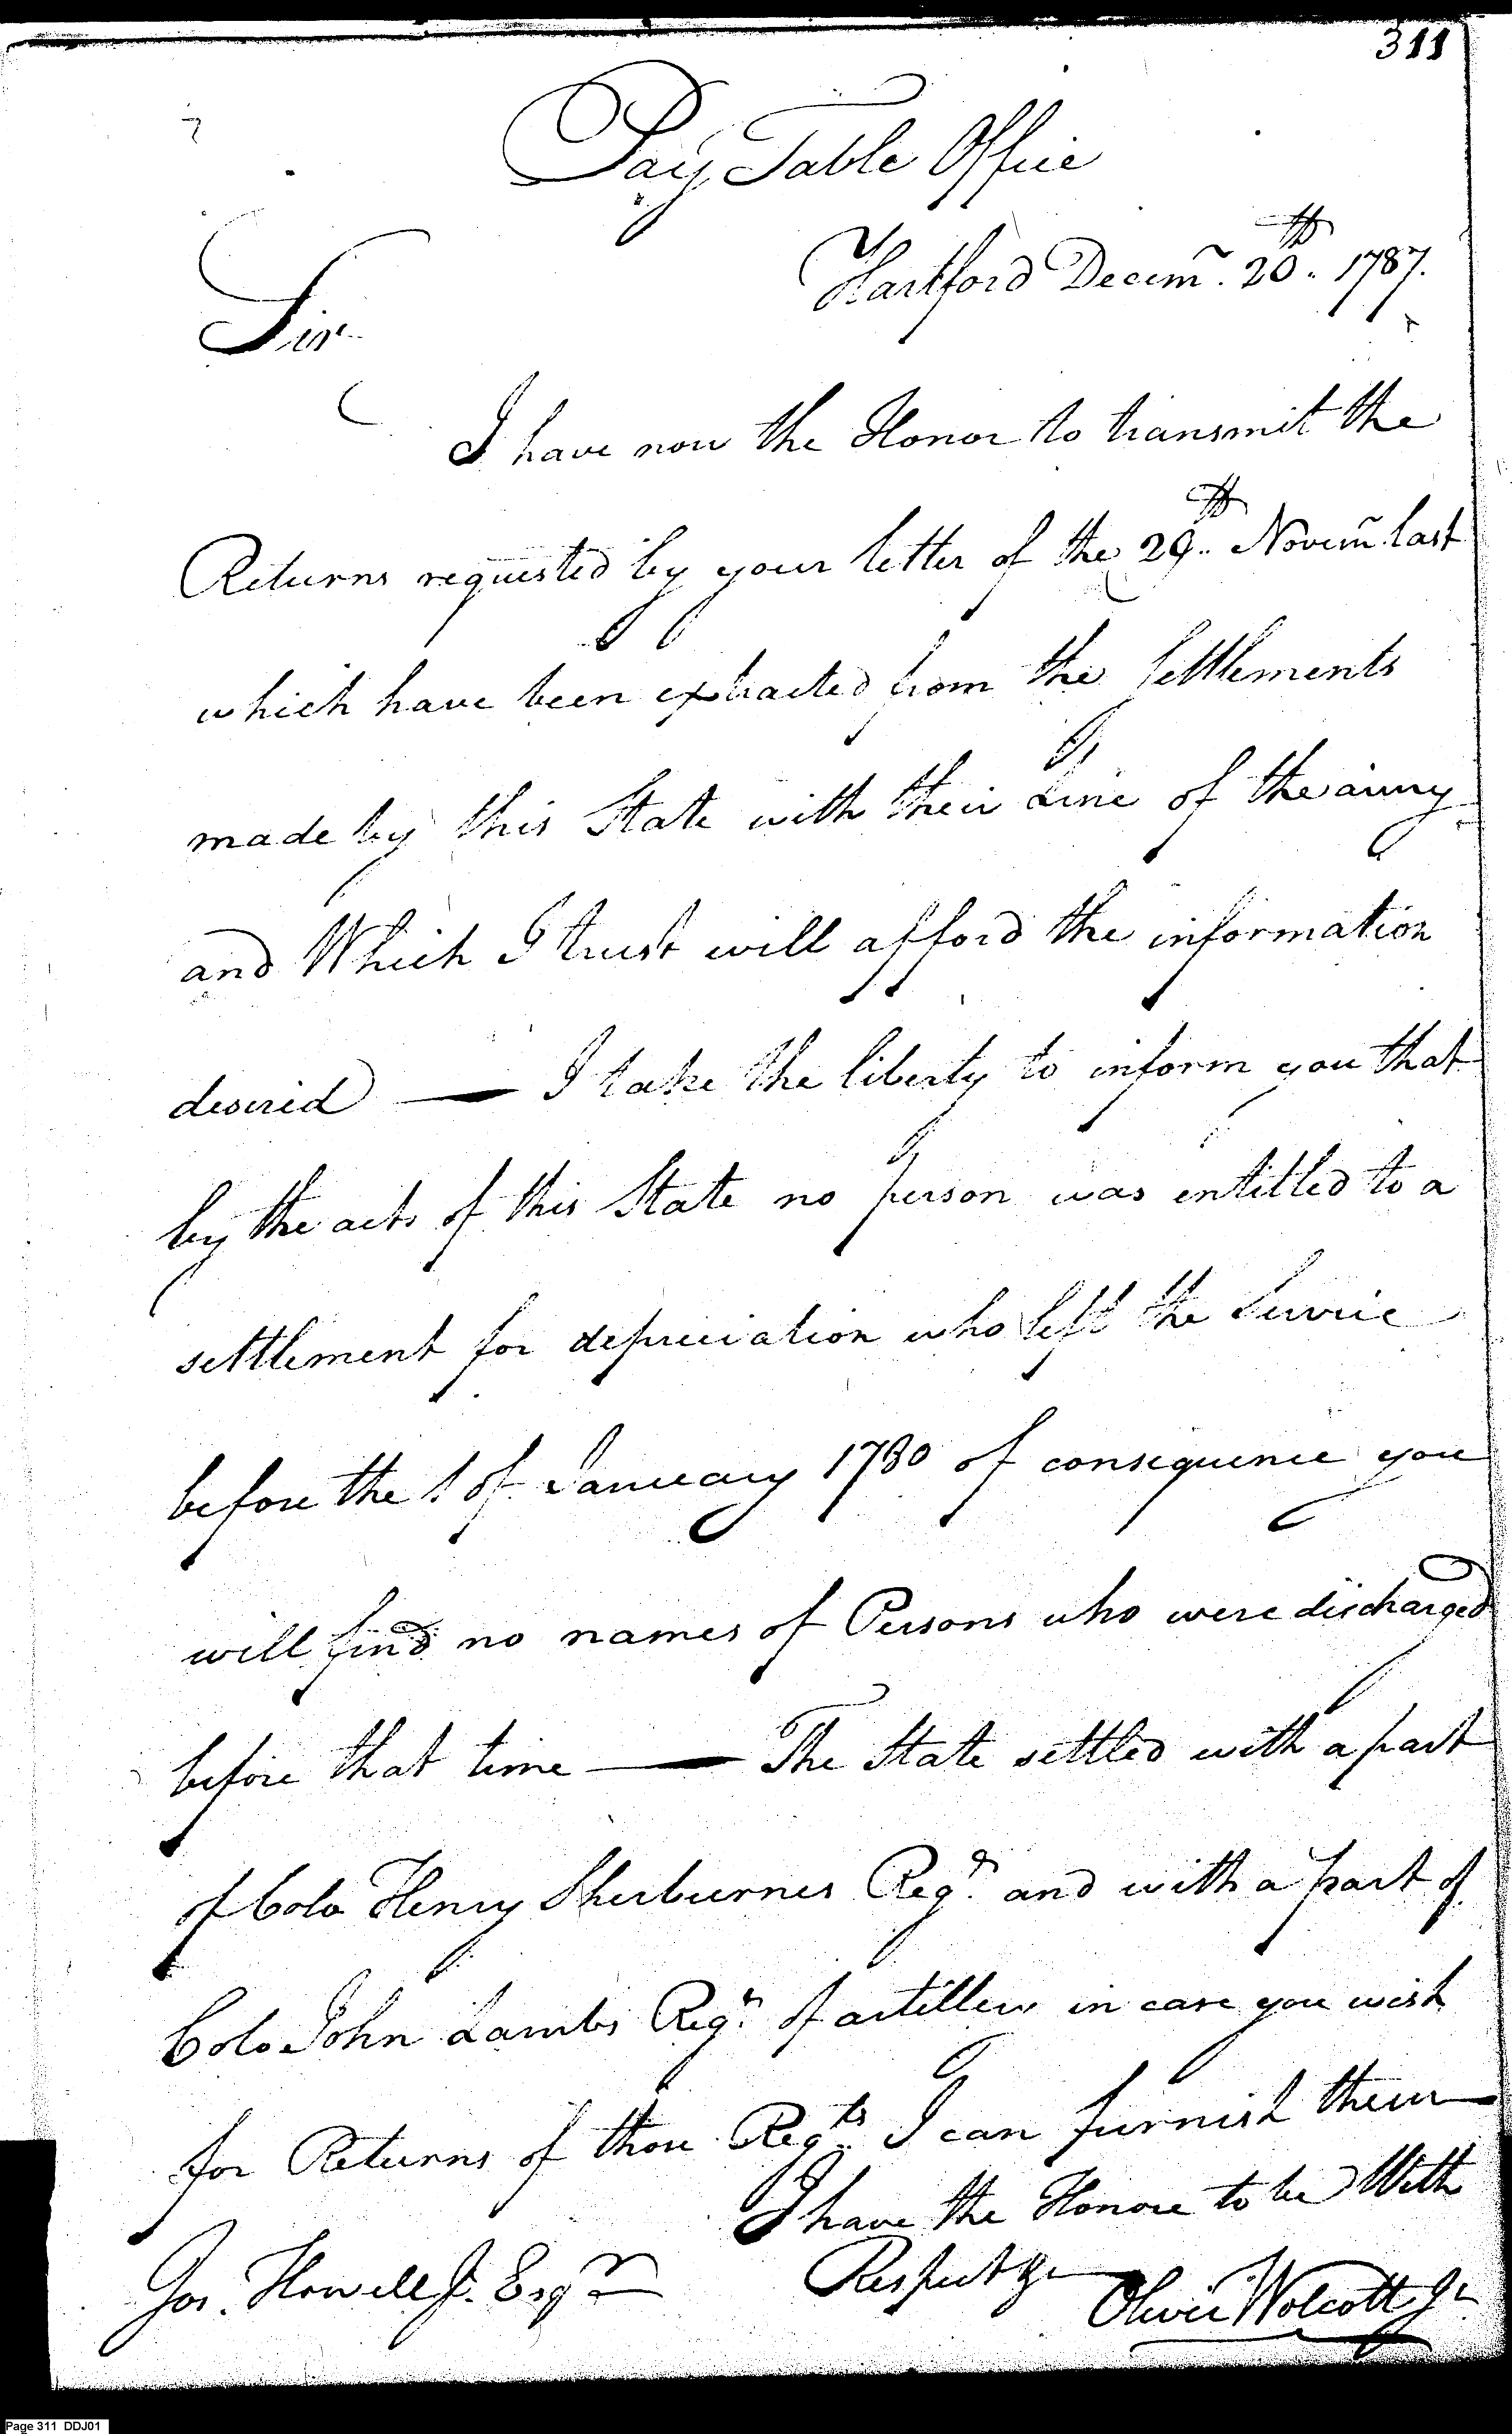 311
Pay Table Office
Hartford Decem. 20th. 1787.
Sir
I have now the Honor to transmit the
Returns requested by your letter of the 29th Novem last
which have been extracted from the Settlements
made by this State with their Line of the army
and Which I trust will afford the information
desired — I take the liberty to inform you that
by the acts of this State no person was entitled to a
settlement for depreciation who left the Service
before the 1 of January 1780 of consequence you
will find no names of Persons who were discharged
before that time — The State settled with a part
of Colo Henry Sherburnes Regt. and with a part of
Colo John Lambs Regt. of artillery in case you wish
for Returns of those Regts. I can furnish them
I have the Honore to be With
Respect &c
Jos. Howell Jr. Esqr
Oliver Wolcott Jr
Page 311 DDJ01